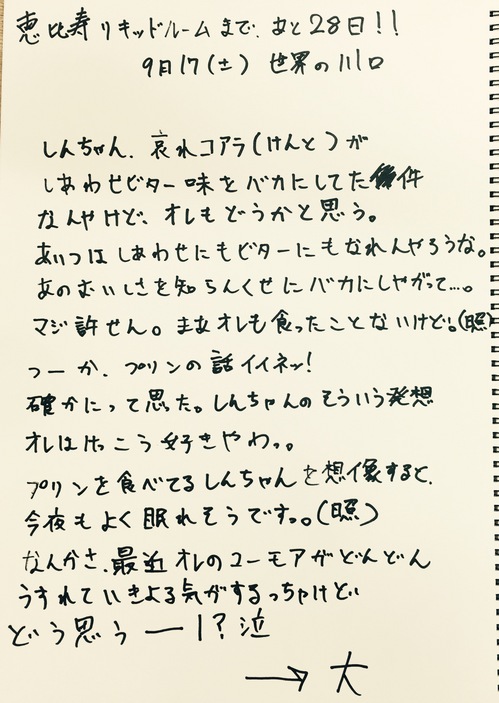 恵比寿リキッドルームまで、あと28日!!
9月17(土) 世界の川口
しんちゃん、哀れコアラ(けんと)が
しあわせビター味をバカにしてた件
なんやけど、オレもどうかと思う。
あいつはしあわせにもビターにもなれんやろうな。
あのむいしさを知らんくせにバカにしやがって…。
マジ許せん。まあオレも食ったことないけど。(照)
つーか、プリンの話イイネッ!
確かにって思った。しんちゃんのそういう発想
オレはけっこう好きやわっ。
プリンを食べてるしんちゃんを想像すると、
今夜もよく眠れそうですっ。(照)
なんかさ、最近オレのユーモアがどんどん
うすれていきよる気がするっちゃけど
どう思うーー!?泣
→大